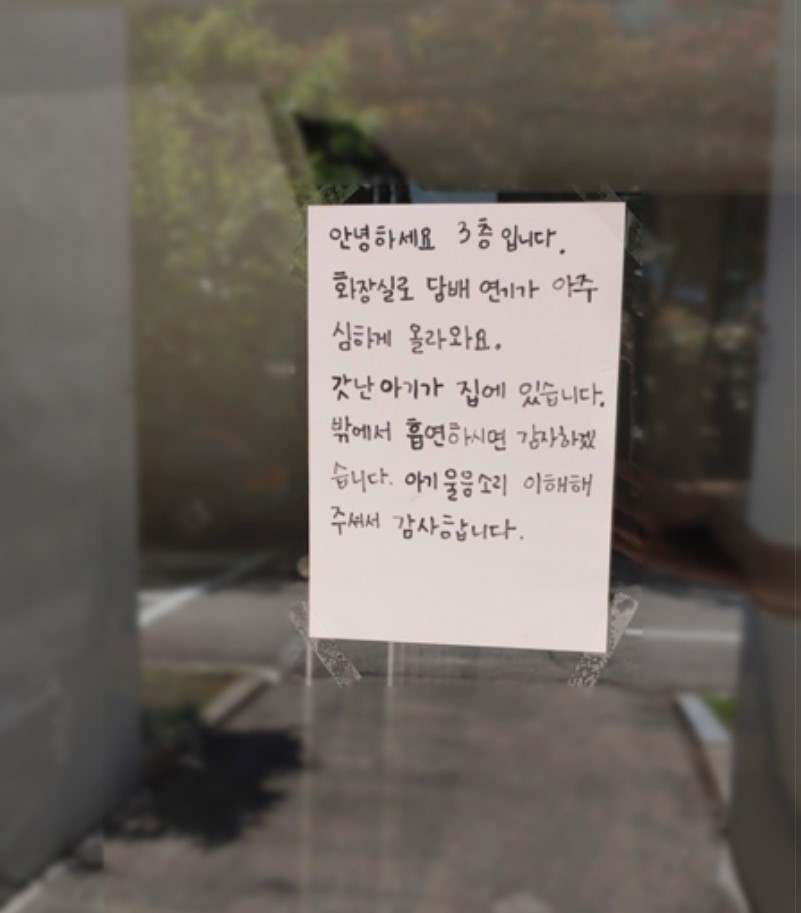 안녕하세요 3층입니다.
화장실로 담배 연기가 아주
심하게 올라와요.
갓난아기가 집에 있습니다.
밖에서 흡연하시면 감자하겠
습니다. 아기울음소리 이해해
주셔서 감사합니다.